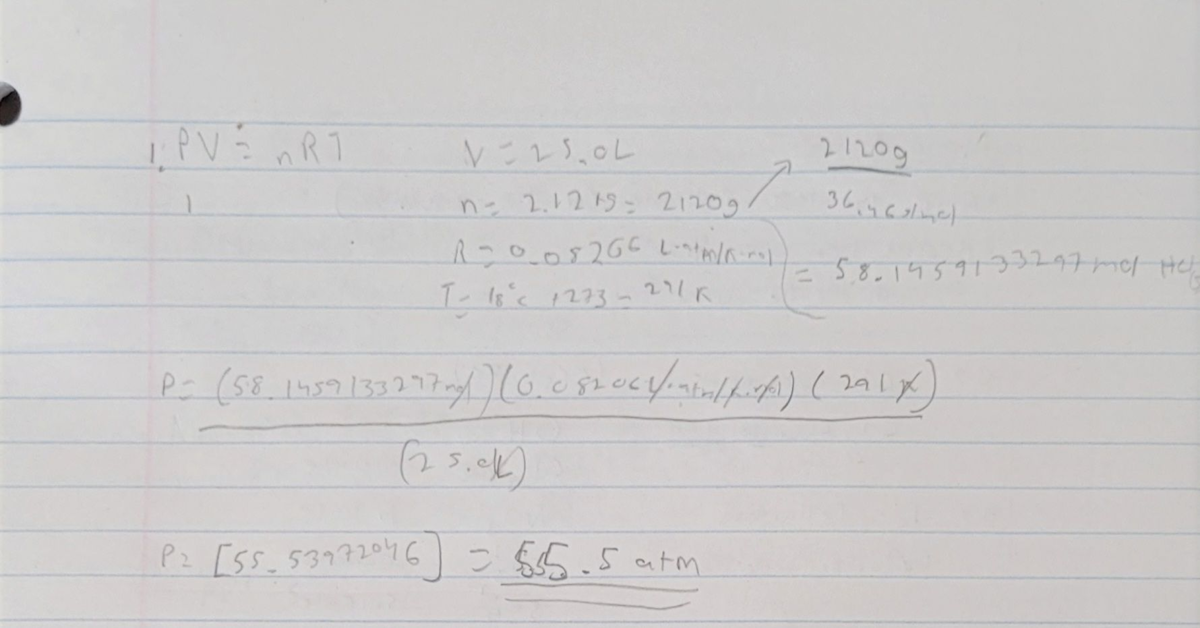 1. PV = nRT V = 25.0L 2120g
1 n = 2.12 kg = 2120g 36.46 g/mol
R = 0.08206 L·atm/K·mol = 58.1459133297 mol HCl
T = 18°C +273 = 291 K
P = (58.1459133297 mol)(0.08206 L·atm/K·mol)(291 K)
(25.0L)
P = [55.53972046] = 55.5 atm